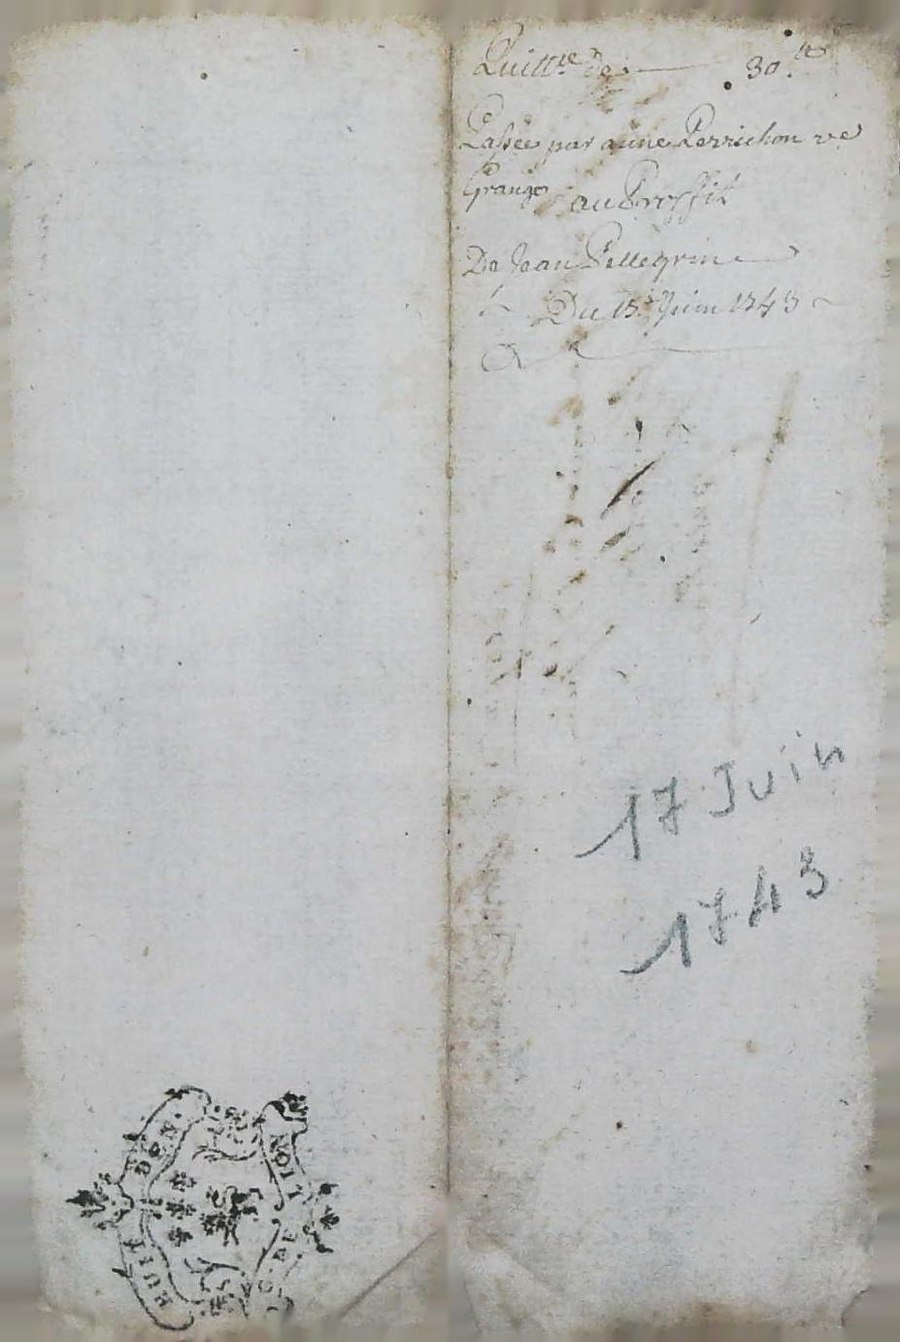 Quitt.ce de 30.lt
Passée par anne Perrichon ve
Grange au Proffit
De Jean Pellegrin
Du 15e Juin 1743
17 Juin
1743
HUIT DEN.
G. DE LION